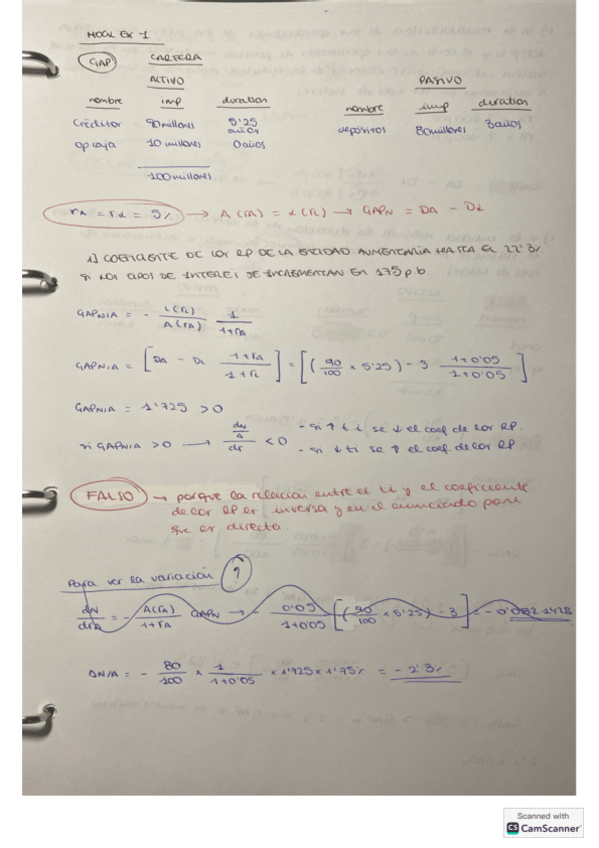 MOCK EX-1
GAP CARTERA
ACTIVO PASIVO
nombre imp duration nombre imp duration
Créditos 90 millones 5'25 años depositos 80 millones 3 años
op caja 10 millones 0 años
100 millones
rA = rL = 5% → A (rA) = L (rL) → GAPN = DA - DL
1) COEFICIENTE DE LOS RP DE LA ENTIDAD AUMENTARIA HASTA EL 22'3%
SI LOS TIPOS DE INTERES SE INCREMENTAN EN 175 p.b
GAPN/A = - L(rL)/A(rA) 1/1+rA
GAPN/A = [DA - DL 1+rA/1+rL] = [(90/100 x 5'25) - 3 1+0'05/1+0'05]
GAPN/A = 1'725 > 0
si GAPN/A > 0 → dN/A / dr < 0 - si ↑ t.i se ↓ el coef de los RP.
- si ↓ ti se ↑ el coef de los RP
FALSO → porque la relacion entre el ti y el coeficiente
de los RP es inversa y en el enunciado pone
que es directa.
Para ver la variación ?
dN/drA = - A(rA)/1+rA GAPN → - 0'05/1+0'05 [(90/100 x 5'25) - 3] = - 0'0821428
DN/A = - 80/100 x 1/1+0'05 x 1'725 x 1'75% = - 2'3%
Scanned with
CS CamScanner